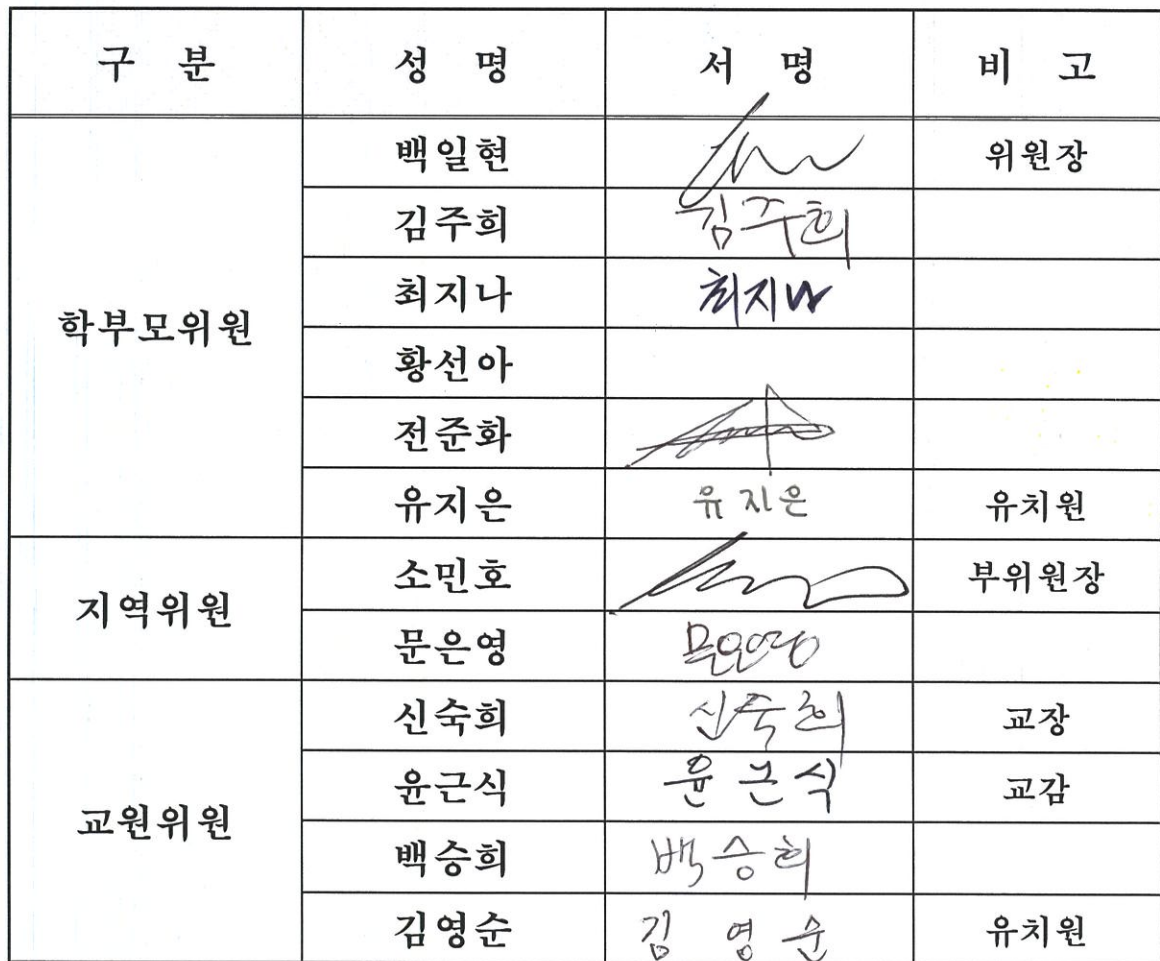 구 분 성 명 서 명 비 고
학부모위원 백일현 위원장
김주희 김주희
최지나 최지나
황선아
전준화
유지은 유지은 유치원
지역위원 소민호 부위원장
문은영 문은영
교원위원 신숙희 신숙희 교장
윤근식 윤근식 교감
백승희 백승희
김영순 김영순 유치원